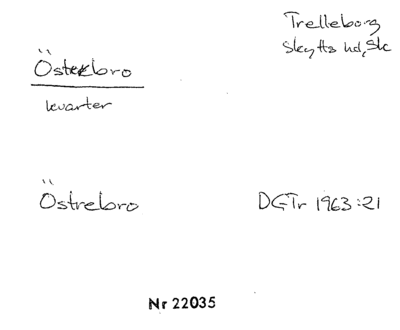 Trelleborg
Skytts hd, Sk
Österbro
kvarter
Östrebro
DGTr 1963:21
Nr 22035